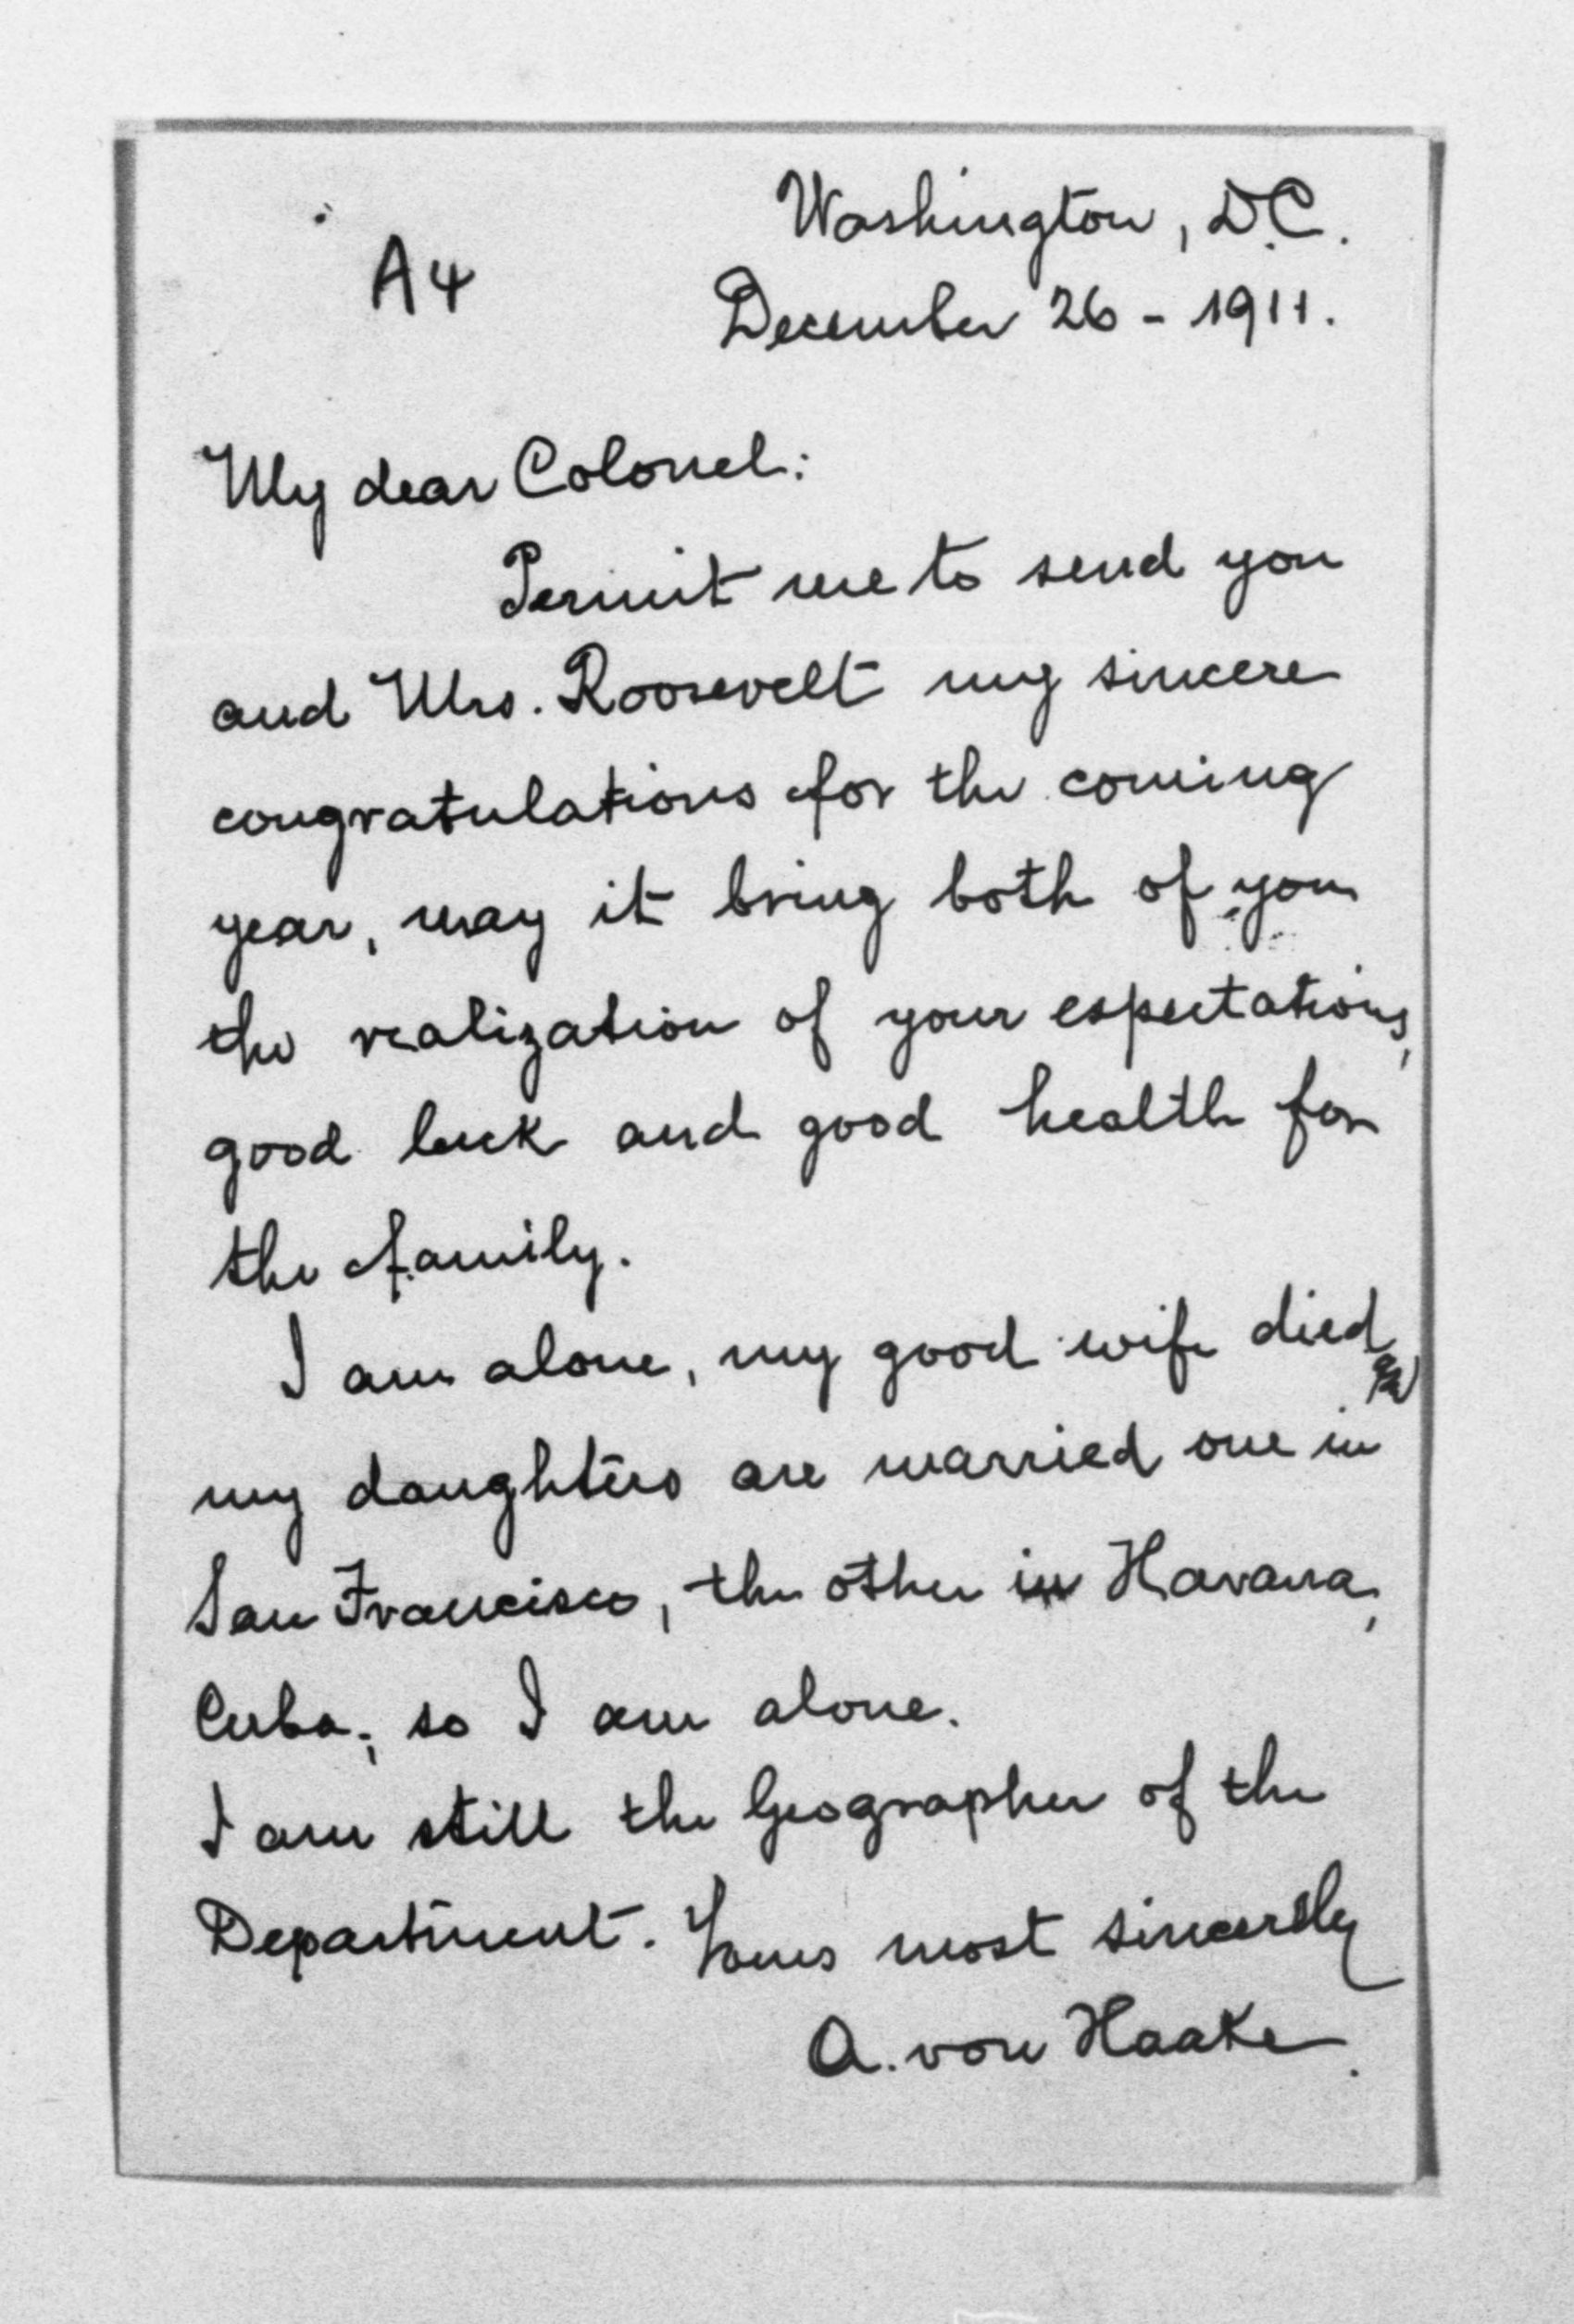 Washington, D.C.
A4
December 26 - 1911.
My dear Colonel:
Permit me to send you
and Mrs. Roosevelt my sincere
congratulations for the coming
year, may it bring both of you
the realization of your espectations,
good luck and good health for
the family.
I am alone, my good wife died
my daughters are married one in
San Francisco, the other in Havana,
Cuba; so I am alone.
I am still the Geographer of the
Department. Yours most sincerely
A. von Haake.